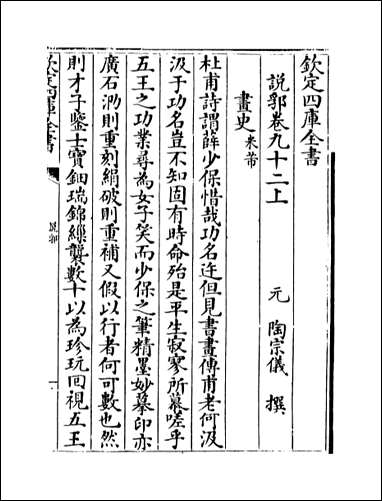 欽定四庫全書
說郛卷九十二上
元 陶宗儀 撰
畫史 米芾
杜甫詩謂薛少保惜哉功名迕但見書畫傳甫老何汲
汲于功名豈不知固有時命殆是平生寂寥所慕嗟乎
五王之功業尋為女子笑而少保之筆精墨妙摹印亦
廣石泐則重刻絹破則重補又假以行者何可數也然
則才子鑒士寶鈿瑞錦繅襲數十以為珍玩回視五王
欽定四庫全書
說郛
一